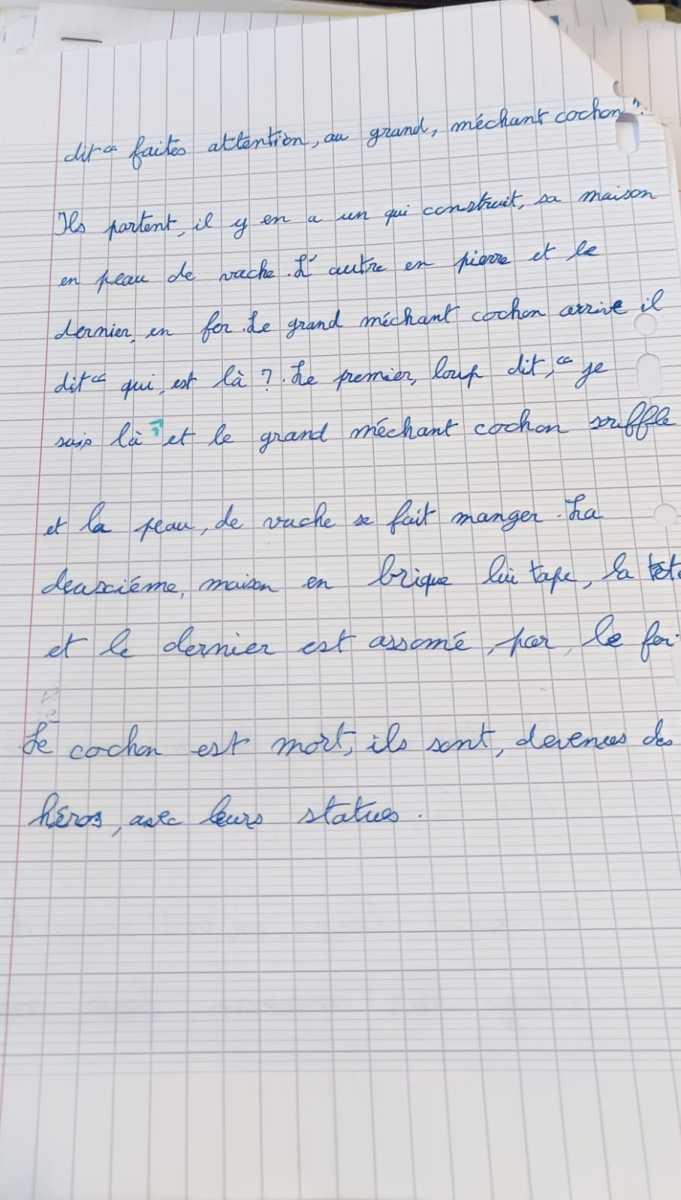 dit " faites attention, au grand, méchant cochon".
Ils partent, il y en a un qui construit, sa maison
en peau de vache. L'autre en pierre et le
dernier, en fer. Le grand méchant cochon arrive il
dit " qui, est là ?. Le premier, loup dit, " je
suis là " et le grand méchant cochon souffle
et la peau, de vache se fait manger. La
deuxciéme, maison en brique lui tape, la tet
et le dernier est assomé, par, le fer.
Le cochon est mort, ils sont, devenues des
héros, avec leurs statues.